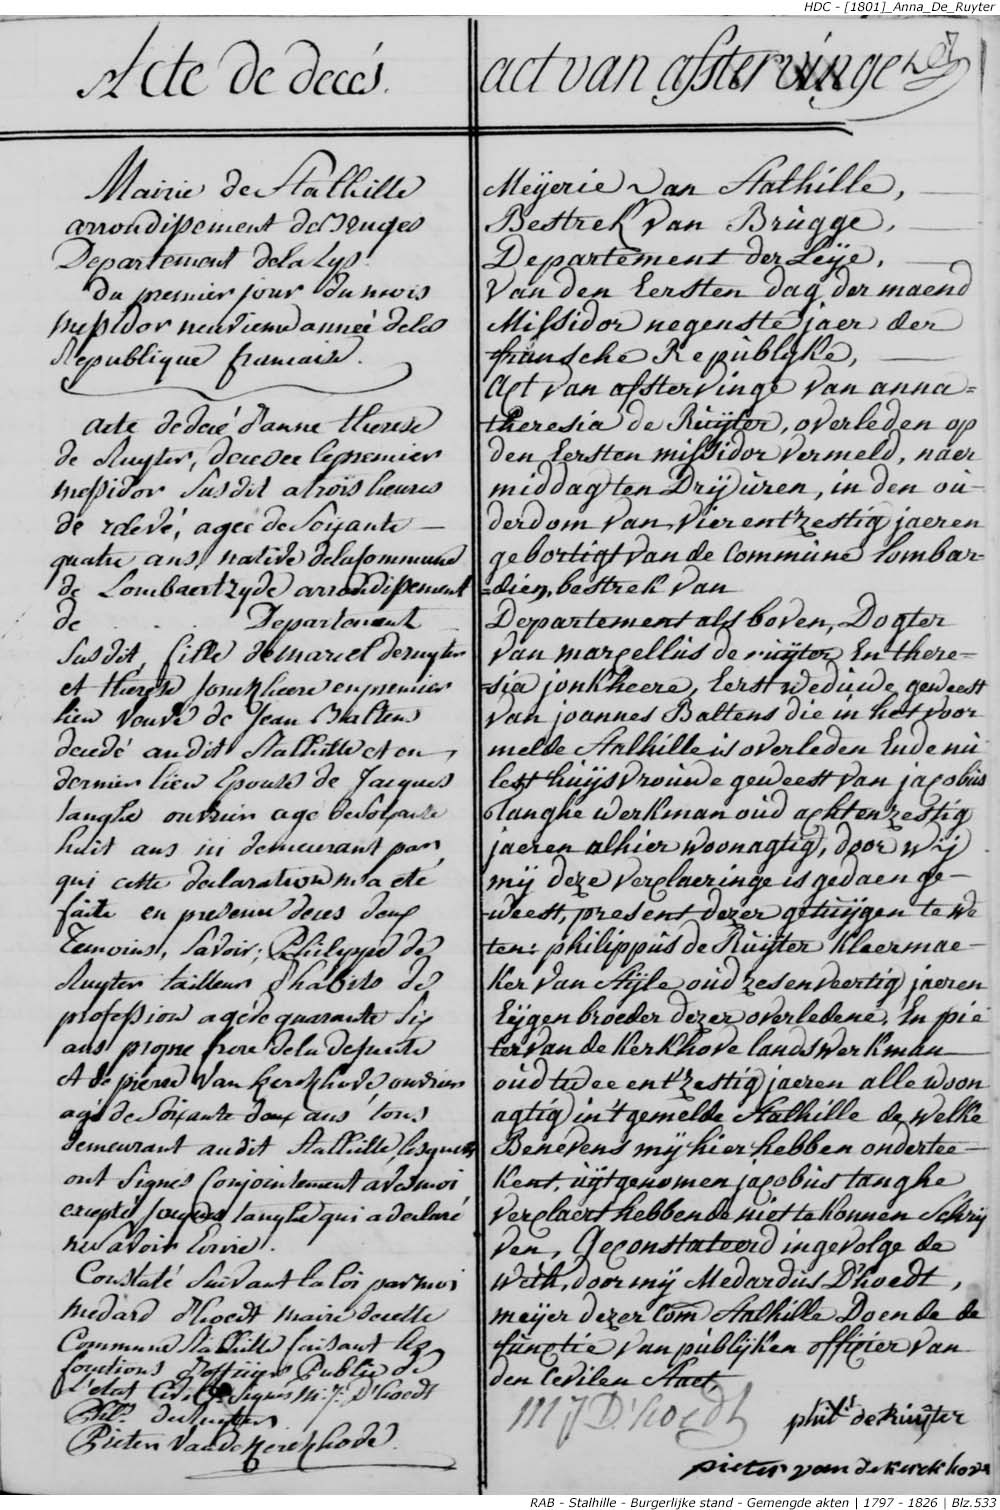 HDC - [1801]_Anna_De_Ruyter
Acte de decés.
Mairie de Stalhille
arrondissement de Bruges
Departement de la Lys.
du premier jour du mois
messidor neuvieme année de la
Republique francaise.
acte de decé d'anne therese
de Ruyter, decedee le premier
messidor susdit a trois heures
de relevé, agée de soixante
quatre ans, native de la Commune
de Lombaertzyde arrondissement
de Departement
susdit, fille de marcel de ruyter
et therese jonckheere en premier
lieu veuve de Jean Baltens
decedé au dit Stalhille et en
dernier lieu Epouse de Jacques
tanghe ouvrier agé de soixante
huit ans ici demeurant par
qui cette declaration m'a eté
faite en presence de ces deux
Temoins, savoir; Philippe de
Ruyter tailleur d'habits de
profession agé de quarante six
ans propre frere de la defunte
et de pierre Van kerckhove ouvrier
agé de soixante deux ans tous
demeurant au dit Stalhille, lesquels
ont signés Conjointement avec moi
excepté jacques tanghe qui a declaré
ne savoir Ecrire.
Constaté suivant la loi par moi
medard d'hoedt maire de cette
Commune Stalhille faisant les
fonctions d'officier Public de
l'etat Civil. signés M. J. D'hoedt
Phil. de Ruyter
Pieter Van de Kerckhove.
act van afstervingen
Meÿerie van Stalhille,
Bestrek van Brugge,
Departement der Leÿe,
van den Eersten dag der maend
Missidor negenste jaer der
fransche Republyke,
Act van afstervinge van anna=
theresia de Ruÿter, overleden op
den Eersten missidor vermeld, naer
middag ten drÿ uren, in den ou-
derdom van vier ent'zestig jaeren
gebortigt van de Commune lombar-
=dien, bestrek van
Departement als boven, Dogter
van marcellus de ruÿter En there=
=sia jonkheere, Eerst weduwe geweest
van joannes Baltens die in het voor
melde Stalhille is overleden Ende nu
lest huÿsvrouwe geweest van jacobus
Tanghe werkman oud achtenzestig
jaeren alhier woonagtig, door wÿ
mÿ deze verclaeringe is gedaen ge-
weest, present dezer getuÿgen te we
ten: philippus de Ruÿter kleermae-
ker van stÿle oud zesenveertig jaeren
Eÿgen broeder dezer overledene, En pie
ter van de kerkhove landswerkman
oud twee ent'zestig jaeren alle woon
agtig in't gemelde Stalhille de welke
Benevens mÿ hier hebben ondertee-
kent, uÿtgenomen jacobus tanghe
verclaert hebbende niet te konnen Schrÿ
ven, Geconstateerd ingevolge de
weth, door mÿ Medardus D'hoedt,
meÿer dezer Com Stalhille Doende de
functie van publÿken officier van
den Civilen Staet.
M J D'hoedt
phil. de Ruÿter
pieter van de kerckhove
RAB - Stalhille - Burgerlijke stand - Gemengde akten | 1797 - 1826 | Blz.533